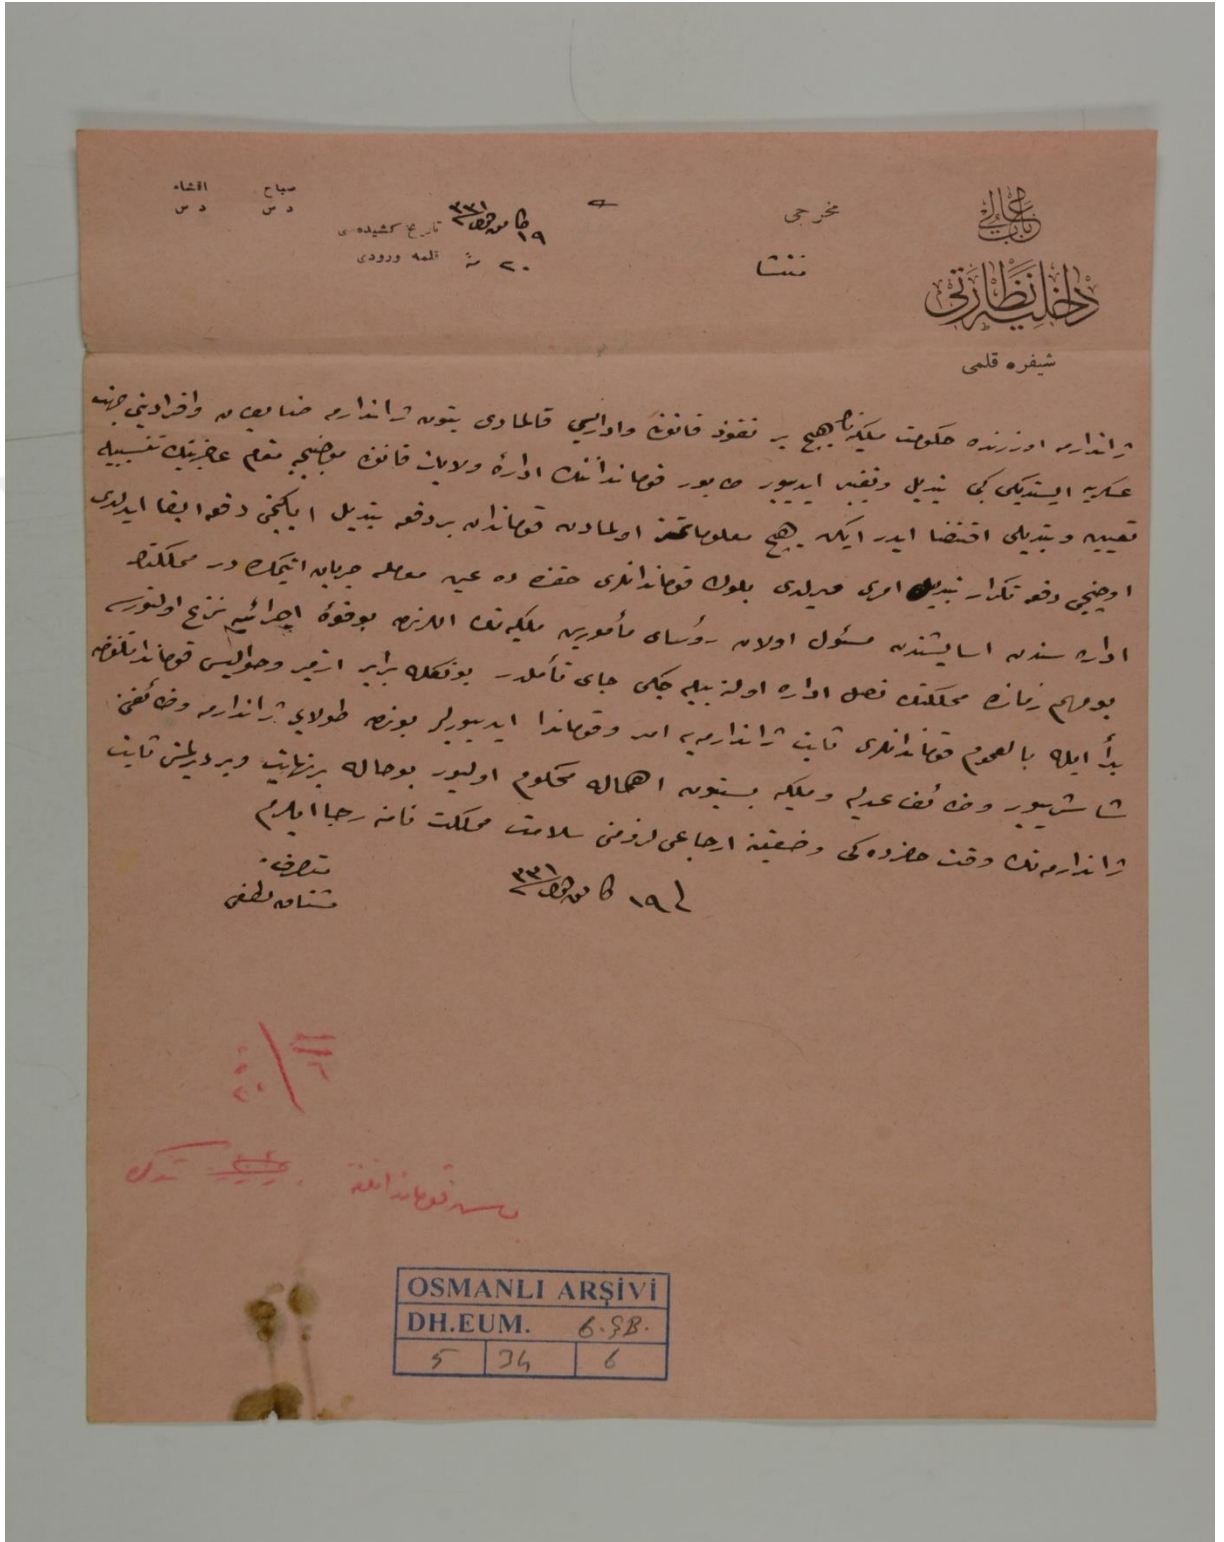 باب عالی
داخلیه نظارتی
شیفره قلمی
مخرجی
منتشا
تاریخ کشیده‌سی ١٩ كانون ٣٣١
قلمه ورودی ٢٠ منه
صباح
د س
اقشام
د س
ژاندارمه اوزرنده حكومت ملكیه‌نك هیچ بر نفوذ قانونی و اداریسی قالمادی بتون ژاندارمه ضابطان و افرادینی جهت
عسكریه ایستدیكی كبی تبدیل و تغییر ایدییور طابور قوماندانلرینك ادارهٔ ولایات قانونی موجبنجه مقام تنسیبیله
تعیین و تبدیلی اقتضا ایدر ایكن هیچ معلوماتمز اولمادن قوماندان بر دفعه تبدیل ایكنجی دفعه ابقا ایدلدی
اوچنجی دفعه تكرار تبدیل امری ویرلدی بلوك قوماندانلری حقنده ده عین معامله جریان ایتمكده‌در مملكتك
اداره‌سندن اسایشندن مسئول اولان رؤسای مأمورین ملكیه‌نك اللرندن بو قوهٔ اجرائیه نزع اولنورسه
بو مهم زمانده مملكتك نصل اداره اولنه بیله‌جكی جای تأملدر بونكله برابر ازمیر و حوالیسی قوماندانلغندن
بدأ ایله بالعموم قوماندانلری ثابت ژاندارمه‌یه امر و قوماندا ایدییورلر بوندن طولایی ژاندارمه وظائفنی
شاشیرییور وظائف عدلیه و ملكیه بستبون اهماله محكوم اولیور بو حاله بر نهایت ویردیرلمش ثابت
ژاندارمه‌نك وقت حضرده‌كی وضعیته ارجاعی لزومنی سلامت مملكت نامنه رجا ایلرم
فی ١٩ كانون ٣٣١
متصرف
OSMANLI ARŞİVİ
DH.EUM. 6.ŞB.
5 34 6